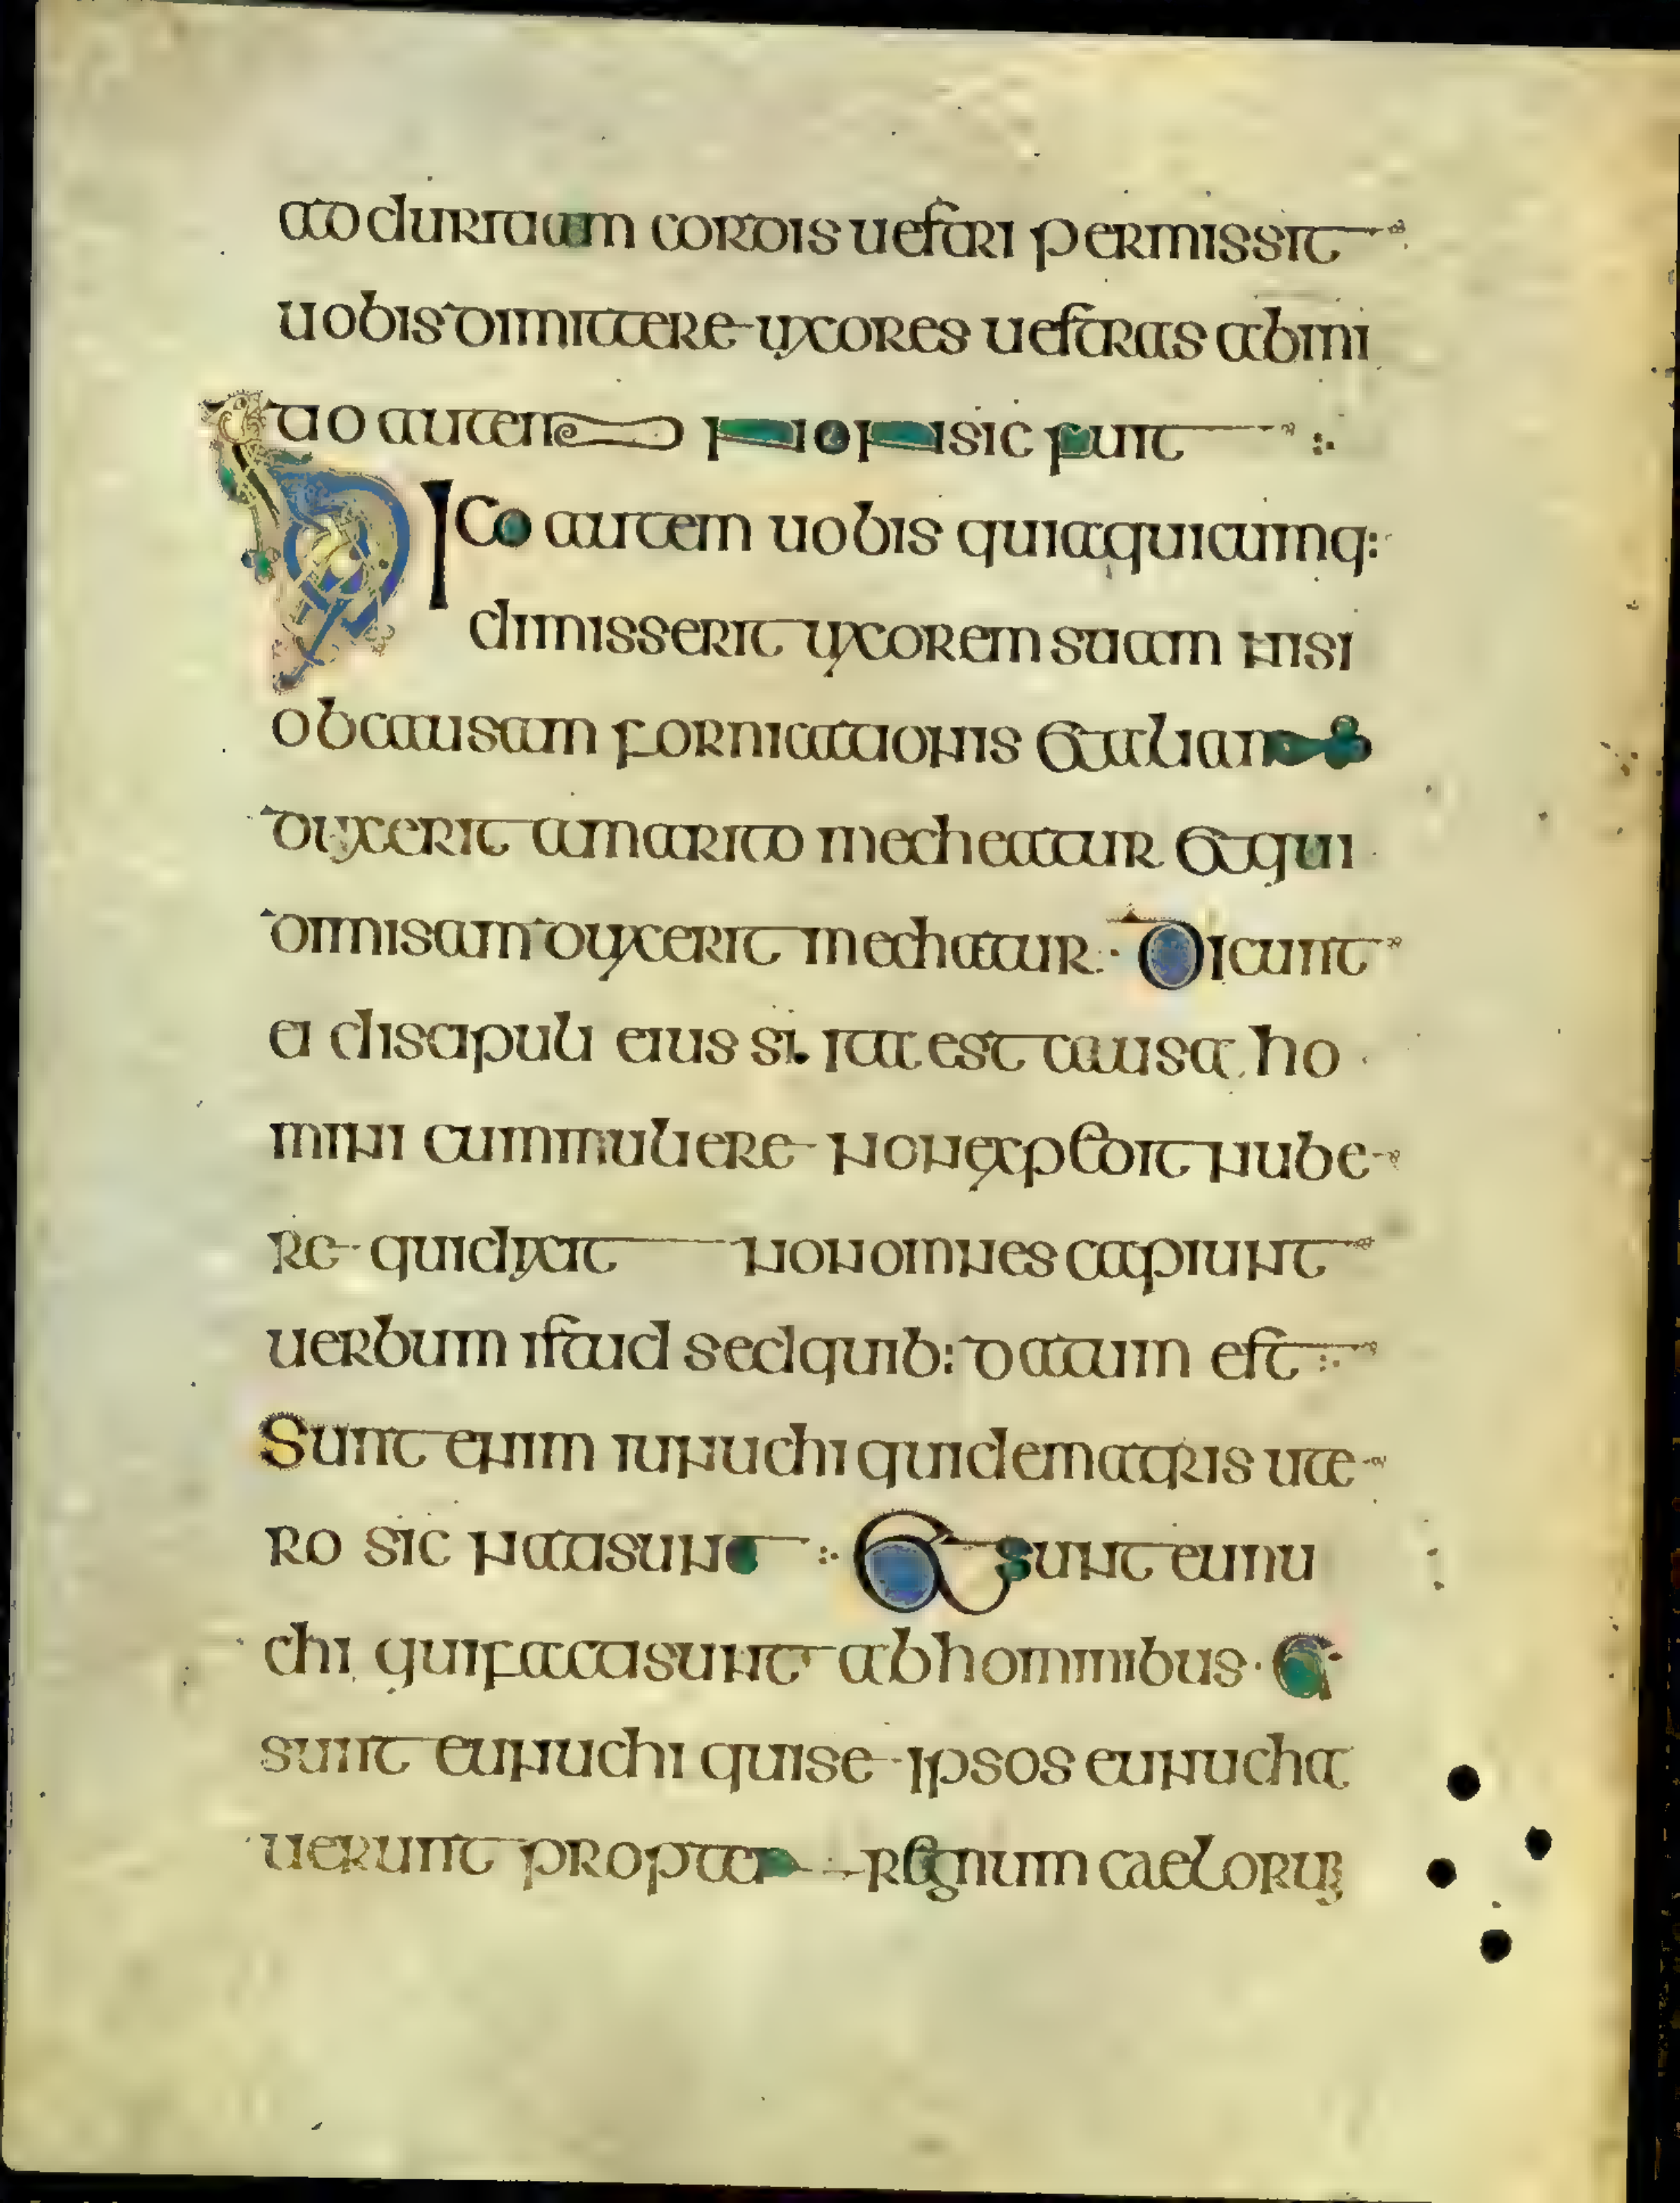 ad duritiam cordis uestri permissit
uobis dimittere uxores uestras ab ini
tio autem non sic fuit
DICo autem uobis quia quicumq:
dimisserit uxorem suam nisi
ob causam fornicationis et aliam
duxerit a marito mecheatur et qui
dimisam duxerit mechatur. Dicunt
ei discipuli eius si ita est causa ho
mini cum muliere non expedit nube
re qui dixit non omnes capiunt
uerbum istud sed quib: datum est
Sunt enim iunuchi qui de matris ute
ro sic nati sunt Et sunt eunu
chi qui facti sunt ab hominibus. Et
sunt eunuchi qui se ipsos eunucha
uerunt propter regnum caelorum